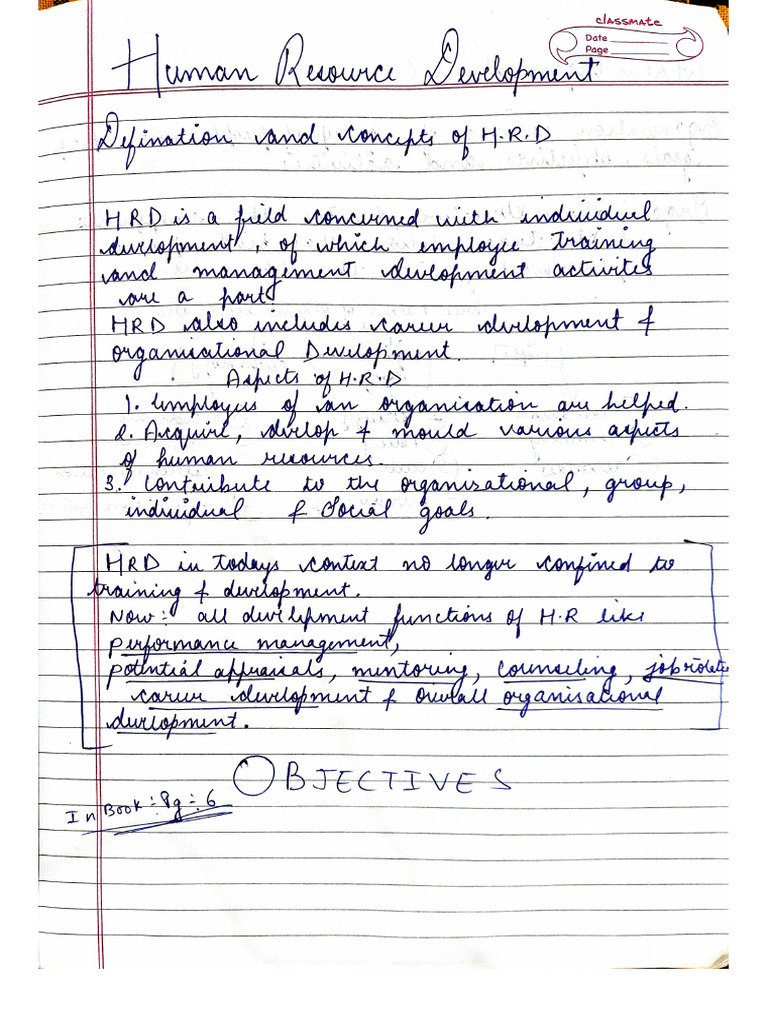 classmate
Date
Page
Human Resource Development
Defination and concepts of H.R.D
HRD is a field concerned with individual
development, of which employee training
and management development activites
are a part.
HRD also includes career development &
organisational Development.
Aspects of H.R.D
1. Employees of an organisation are helped.
2. Acquire, develop & mould various aspects
of human resources.
3. Contribute to the organisational, group,
individual & Social goals.
HRD in todays context no longer confined to
training & development.
Now:- all development functions of H.R like
performance management,
potential appraisals, mentoring, counseling, job
career development & overall organisational
development.
OBJECTIVES
In Book :- Pg :- 6